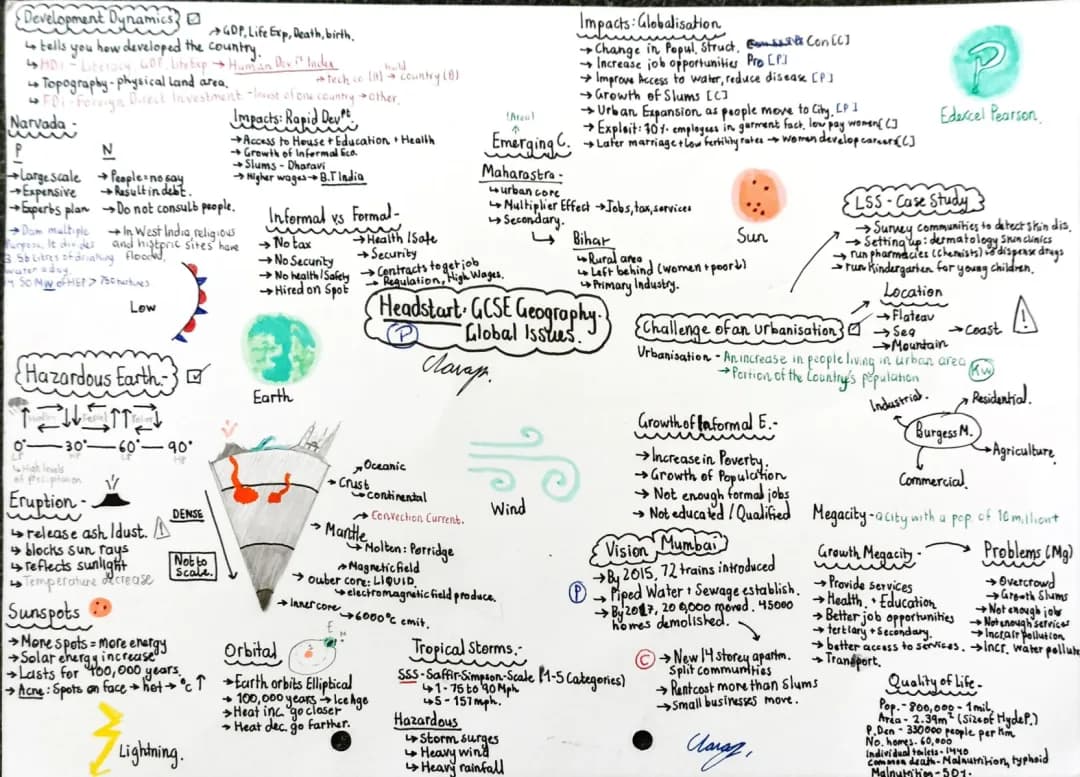 Development Dynamics
→ GDP, Life Exp, Death, birth.
↳ tells you how developed the country.
↳ HDI - Literacy, GDP, LifeExp → Human Devᵗ Index
↳ Topography - physical Land area.
→ Tech co. (A) build → country (B)
↳ FDI - Foreign Direct Investment - Invest of one country → other.
Narvada -
P
→ Large scale
→ Expensive
→ Experts plan
→ Dam multiple
purpose. It divides
3.5b Litres of drinking
water a day.
N
→ People = no say
→ Result in debt.
→ Do not consult people.
→ In West India, religious
and historic sites have
flooded.
Impacts: Rapid Devᵖᵗ
→ Access to House + Education + Health
→ Growth of Informal Eco.
→ Slums - Dharavi
→ Higher wages → B.T India
Informal vs Formal -
→ No tax
→ No Security
→ No health/Safety
→ Hired on Spot
→ Health / Safe
→ Security
→ Contracts to get job
→ Regulation, High Wages.
Impacts: Globalisation
→ Change in Popul. Struct. Con [C]
→ Increase job opportunities Pro [P]
→ Improve Access to water, reduce disease [P]
→ Growth of Slums [C]
→ Urban Expansion as people move to City. [P]
→ Exploit: 30% employees in garment fact. low pay women [C]
→ Later marriage + low fertility rates → women develop careers [C]
Edexcel Pearson.
(Area)
Emerging C.
Maharastra -
↳ Urban core
↳ Multiplier Effect → Jobs, tax, services
↳ Secondary.
Bihar
↳ Rural area
↳ Left behind (women + poor↓)
↳ Primary Industry.
Sun
LSS - Case Study
→ Survey communities to detect skin dis.
→ Setting up: dermatology skin clinics
→ run pharmacies (chemists) to dispense drugs
→ run Kindergarten for young children.
Low
Earth
Headstart: GCSE Geography.
Global Issues.
P
Challenge of an Urbanisation
Location
→ Flateau
→ Sea → Coast
→ Mountain
Urbanisation - An increase in people living in urban area
→ Portion of the Country's population
KW
Hazardous Earth.
0° 30° 60° 90°
LP HP LP HP
↳ High levels
of precipitation
Eruption -
↳ release ash/dust.
↳ blocks sun rays
↳ reflects sunlight
↳ Temperature decrease
DENSE
Not to
Scale.
Oceanic
Crust
Continental
→ Convection Current.
→ Mantle
→ Molton: Porridge
→ Magnetic field
→ Outer core: LIQUID.
↳ electromagnetic field produce.
→ Inner core
→ 6000°c emit.
Wind
Growth of Informal E. -
→ Increase in Poverty
→ Growth of Population
→ Not enough formal jobs
→ Not educated / Qualified
Industrial.
Residential.
Burgess M.
Agriculture
Commercial.
Megacity - a city with a pop. of 10 million+
Vision Mumbai
P
→ By 2015, 72 trains introduced
→ Piped Water + Sewage establish.
→ By 2017, 200,000 moved. 45000
homes demolished.
C
→ New 14 storey apartm.
Split communities
→ Rent cost more than Slums
→ Small businesses move.
Growth Megacity -
→ Provide services
→ Health. + Education
→ Better job opportunities
→ tertiary + Secondary.
→ better access to services.
→ Transport.
Problems (Mg)
→ Overcrowd
→ Growth Slums
→ Not enough job
→ Not enough services
→ Incr. air pollution
→ Incr. water pollute
Sunspots
→ More spots = more energy
→ Solar energy increase
→ Lasts for 100,000 years.
→ Acne: Spots on face → hot → °c ↑
Lightning.
Orbital
E
→ Earth orbits Elliptical
→ 100,000 years → Ice Age
→ Heat inc. go closer
→ Heat dec. go farther.
Tropical Storms. -
SSS - Saffir-Simpson-Scale (1-5 Categories)
↳ 1 - 76 to 90 Mph
↳ 5 - 157 mph.
Hazardous
↳ Storm surges
↳ Heavy wind
↳ Heavy rainfall
Quality of Life -
Pop. - 800,000 - 1 mil.
Area - 2.39m² (Size of Hyde P.)
P. Den - 330000 people per Km
No. homes. 60,000
Individual toilets - 1440
Common death - Malnutrition, typhoid
Malnutrition - 50%.